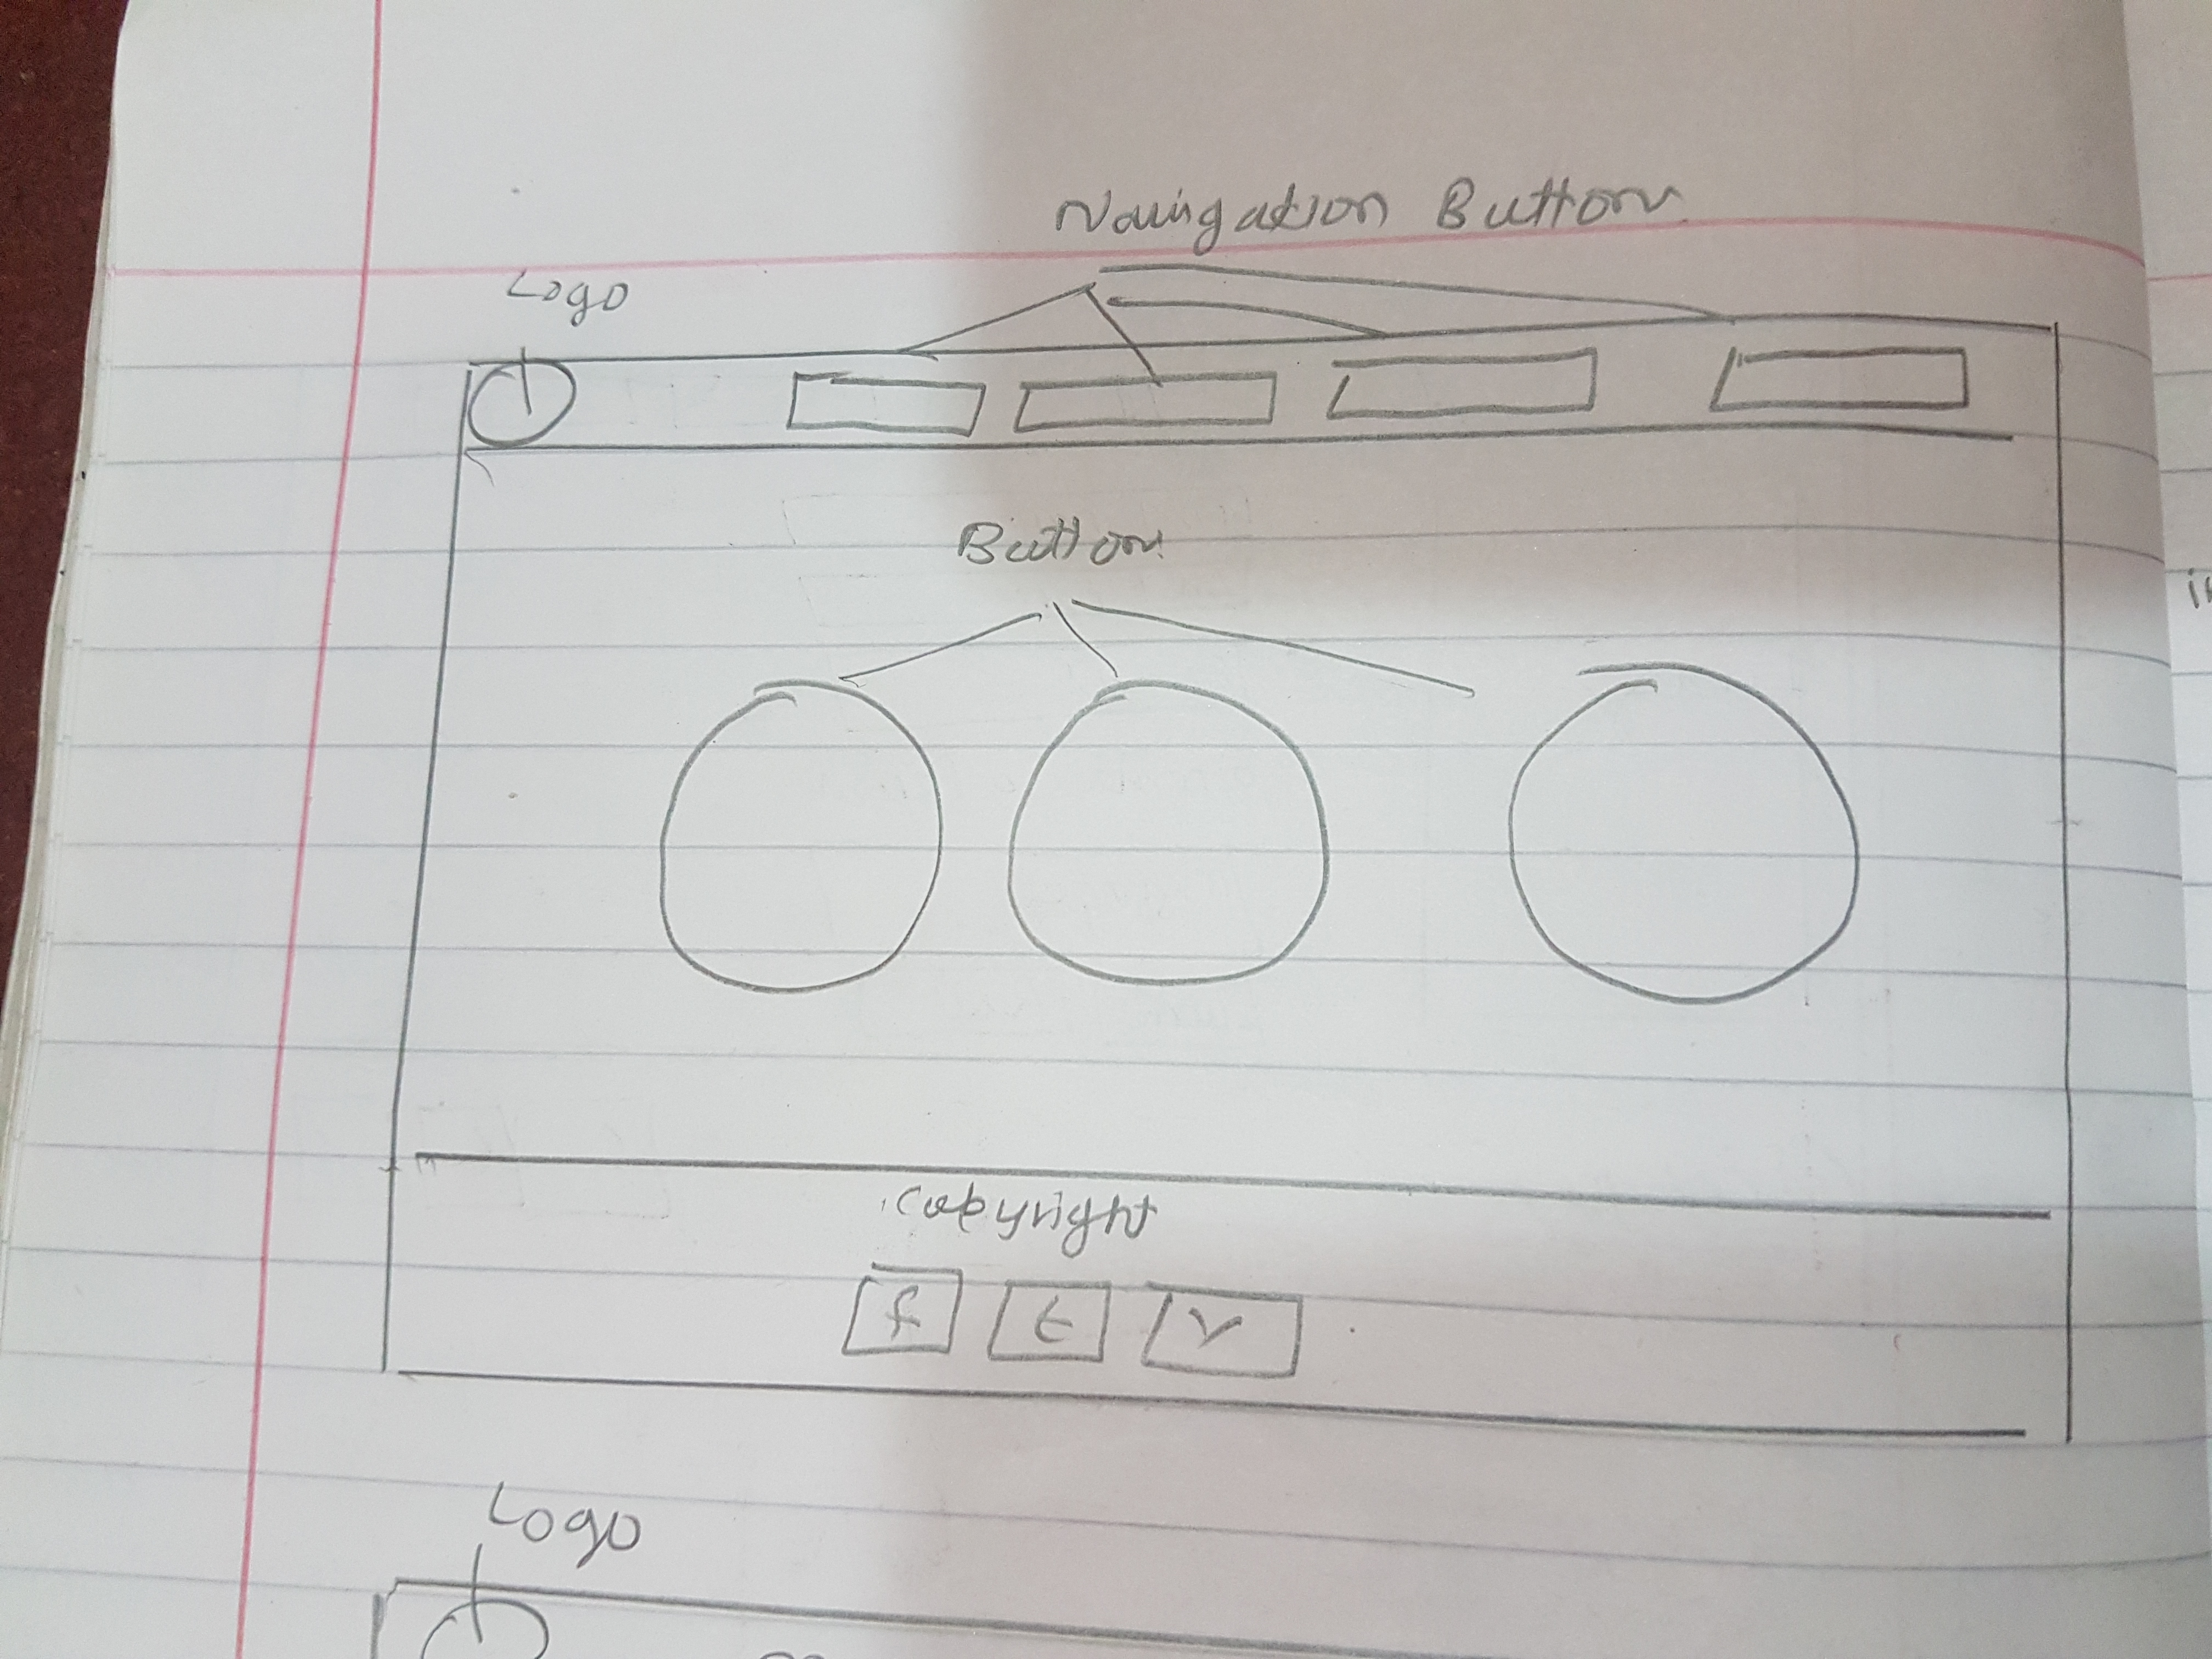 Navigation Button
Logo
Button
Copyright
f t Y
Logo